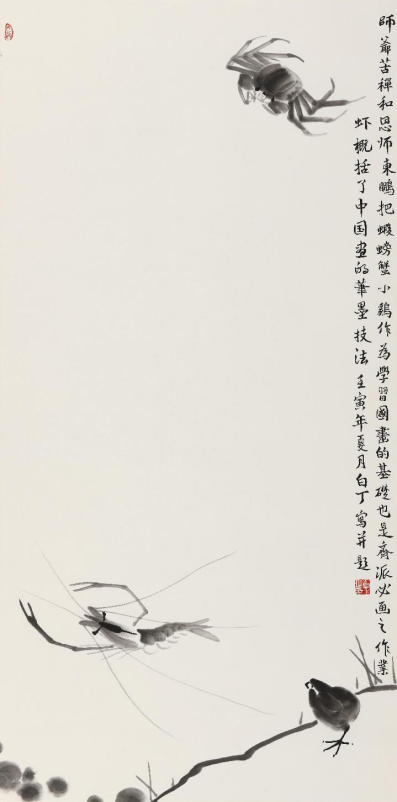 師爺苦禪和恩师東鵬把蝦螃蟹小鷄作為學習國畫的基礎也是齊派必画之作業
虾概括了中国畫的筆墨技法 壬寅年夏月白丁寫并題